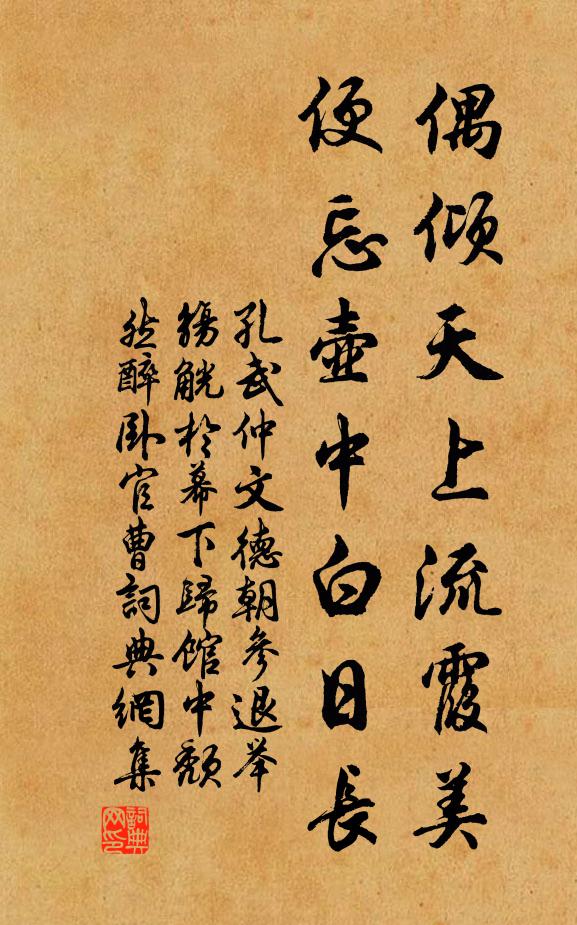 偶傾天上流霞美
便忘壺中白日長
孔武仲文德朝參退举
觴觥於幕下歸館中頹
然醉卧官曹詞典網集
詞典网印